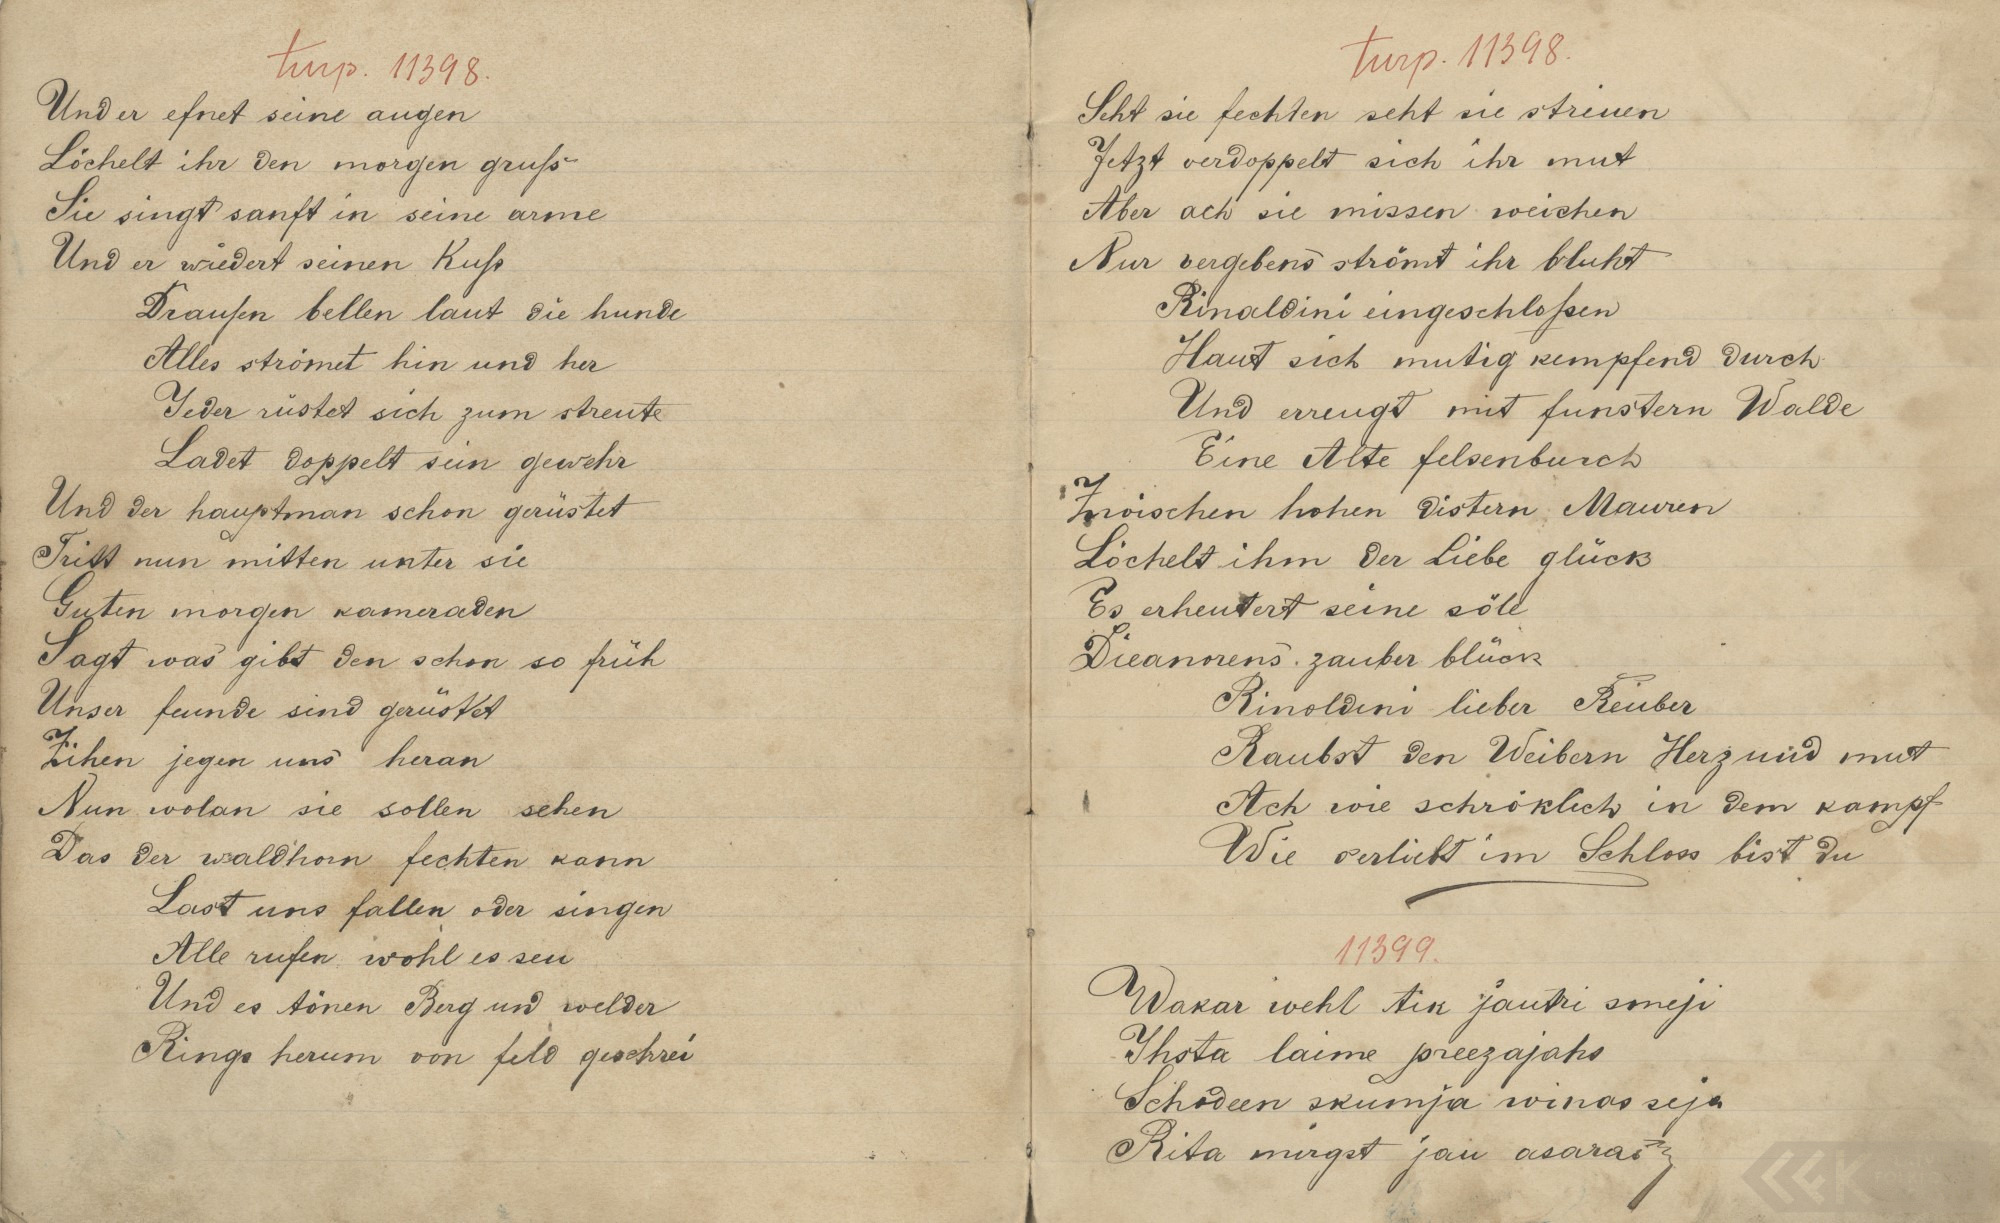 turp. 11398.
Und er efnet seine augen
Löchelt ihr den morgen gruſs
Sie singt sanft in seine arme
Und er wiedert seinen Kuſs
Drauſen bellen laut die hunde
Alles strömet hin und her
Jeder rüstet sich zum streute
Ladet doppelt sein gewehr
Und der hauptman schon gerüstet
Tritt nun mitten unter sie
Guten morgen kameraden
Sagt was gibt den schon so früh
Unser feunde sind gerüstet
Zihen jegen uns heran
Nun wolan sie sollen sehen
Das der waldhorn fechten kann
Last uns fallen oder singen
Alle rufen wohl es seu
Und es tönen Berg und welder
Rings herum von feld geschrei
turp. 11398.
Seht sie fechten seht sie streuen
Jetzt verdoppelt sich ihr mut
Aber ach sie missen weichen
Nur vergebens strömt ihr bluht
Rinaldini eingeschloſsen
Haut sich mutig kempfend durch
Und erreugt mit funstern Walde
Eine Alte felsenburch
Zwischen hohen distern Mauren
Löchelt ihm der Liebe glück
Es erheutert seine söle
Dieanorens zauber blück
Rinoldini lieber Reuber
Raubst den Weibern Herz und mut
Ach wie schröklich in dem kampf
Wie verliebt im Schloss bist du
11399.
Wakar wehl tik jautri smeji
Ihsta laime preezajahs
Schodeen skumja winas seja
Rita mirgst jau asaras